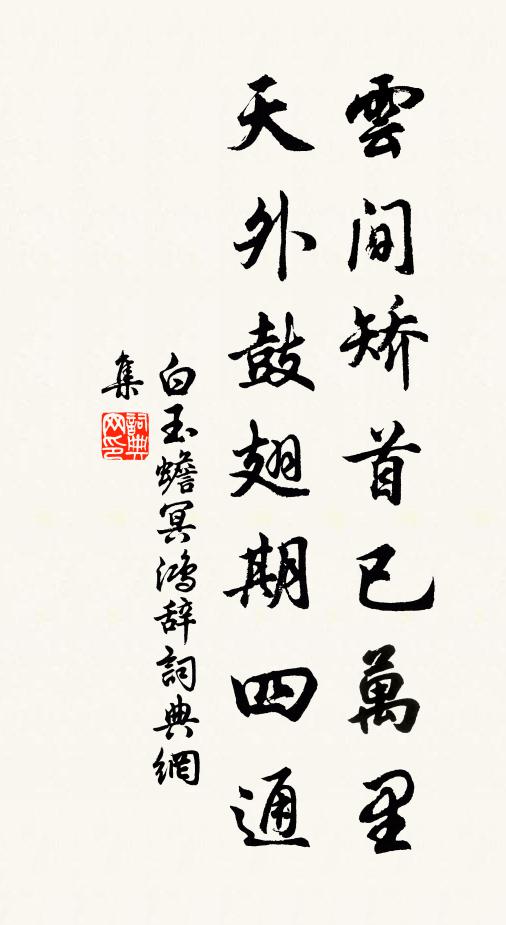 雲間矯首已萬里
天外鼓翅期四通
白玉蟾冥鴻辞詞典網
集
詞典网印